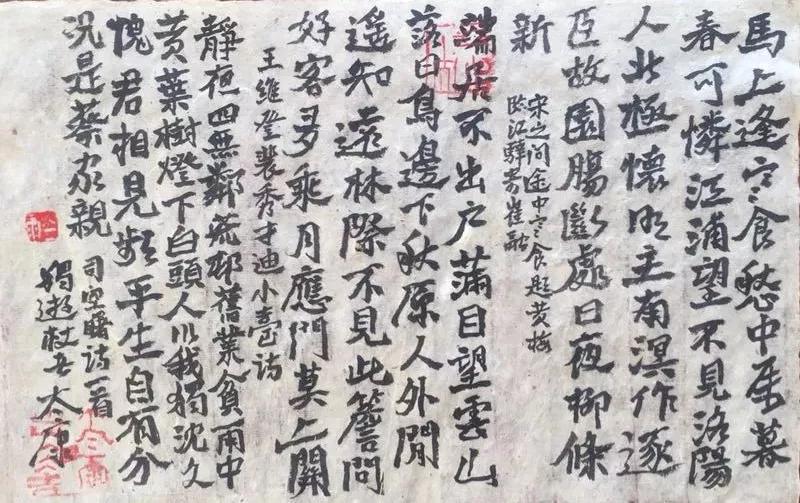 馬上逢寒食愁中屬暮
春可憐江浦望不見洛陽
人北極懷明主南溟作逐
臣故園腸斷處日夜柳條
新
宋之问途中寒食题黄梅
临江驛寄崔融
端居不出户滿目望雲山
落日鳥邊下秋原人外閒
遥知遠林際不見此簷間
好客多乘月應門莫上關
王維登裴秀才迪小臺詩
靜夜四無鄰荒邨舊業貧雨中
黄葉樹燈下白頭人以我獨沈久
愧君相見頻平生自有分
况是蔡家親
司空曙詩一首